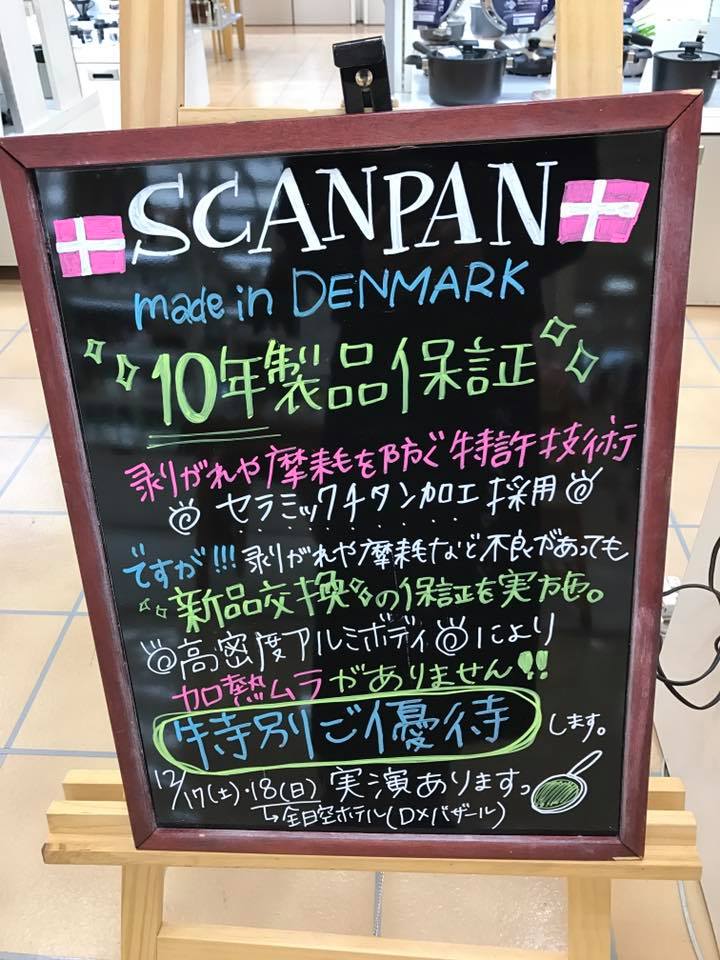 SCANPAN
made in DENMARK
10年製品保証
剥がれや摩耗を防ぐ特許技術
セラミックチタン加工採用
ですが!!!剥がれや摩耗など不良があっても
新品交換の保証を実施。
高密度アルミボディにより
加熱ムラがありません!!
特別ご優待します。
12/17(土)・18(日)実演あります。
↳全日空ホテル(DMバザール)